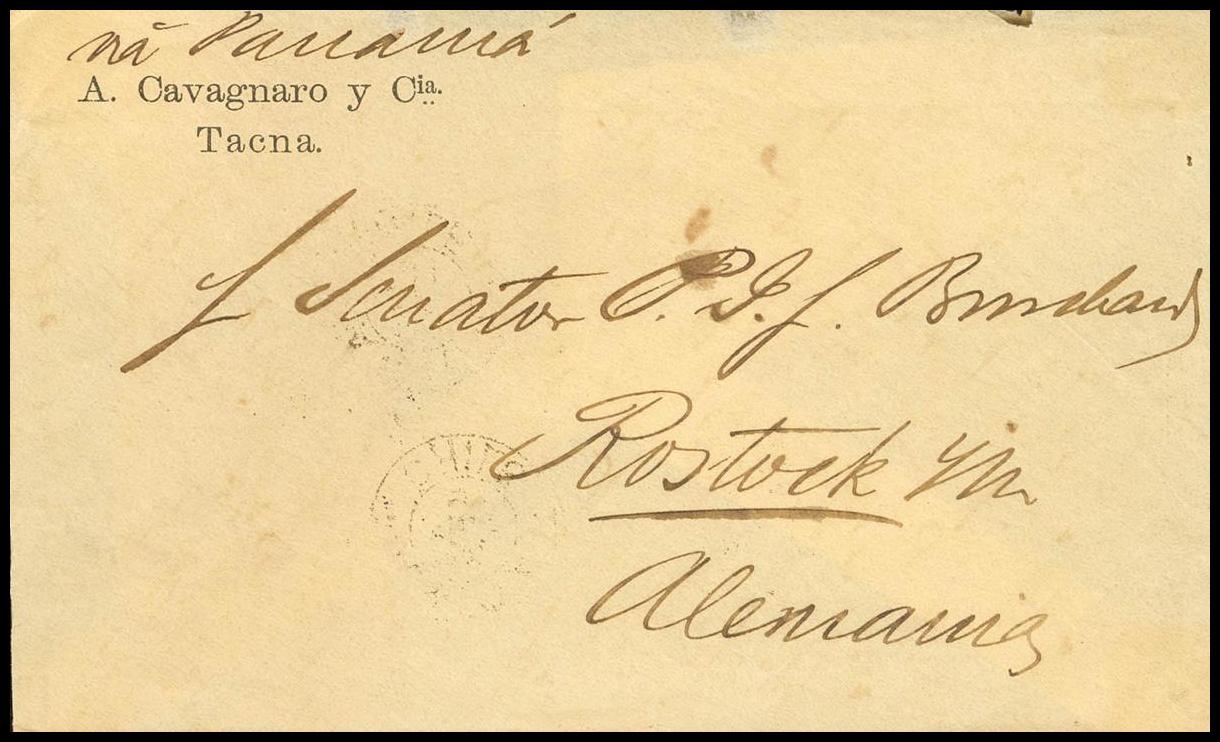 viâ Panamá
A. Cavagnaro y Cia.
Tacna.
Senator P. J. f. Burchard
Rostock i/M
Alemania